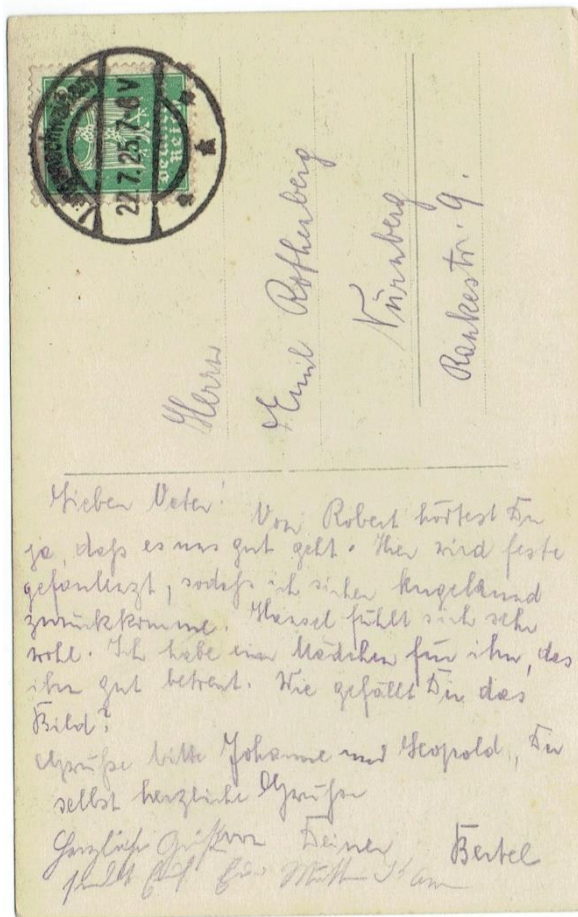 22.7.25.7-8V
Deutsches
Reich
Herrn
Emil Rothenberg
Nürnberg
Rankestr. 9.
Lieber Vater!
Von Robert hörtest Du
ja, daß es uns gut geht. Hier wird feste
gefaulenzt, sodaß ich sicher kugelrund
zurückkomme. Hansel fühlt sich sehr
wohl. Ich habe ein Mädchen für ihn, das
ihn gut betreut. Wie gefällt Dir das
Bild?
Grüße bitte Johanna und Leopold, Du
selbst herzliche Grüße
von Deiner Bertel
Herzliche Grüße